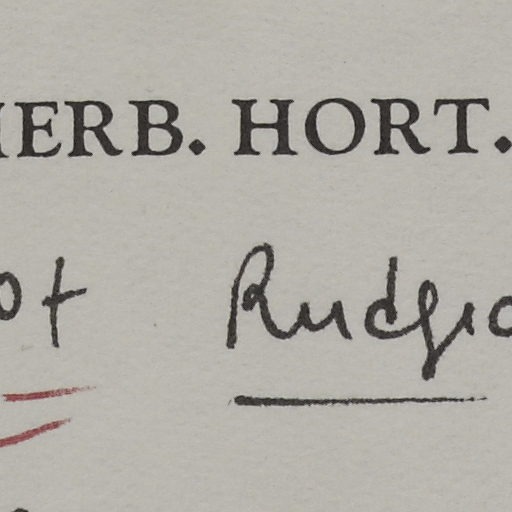 HERB. HORT.
ot Rudgio